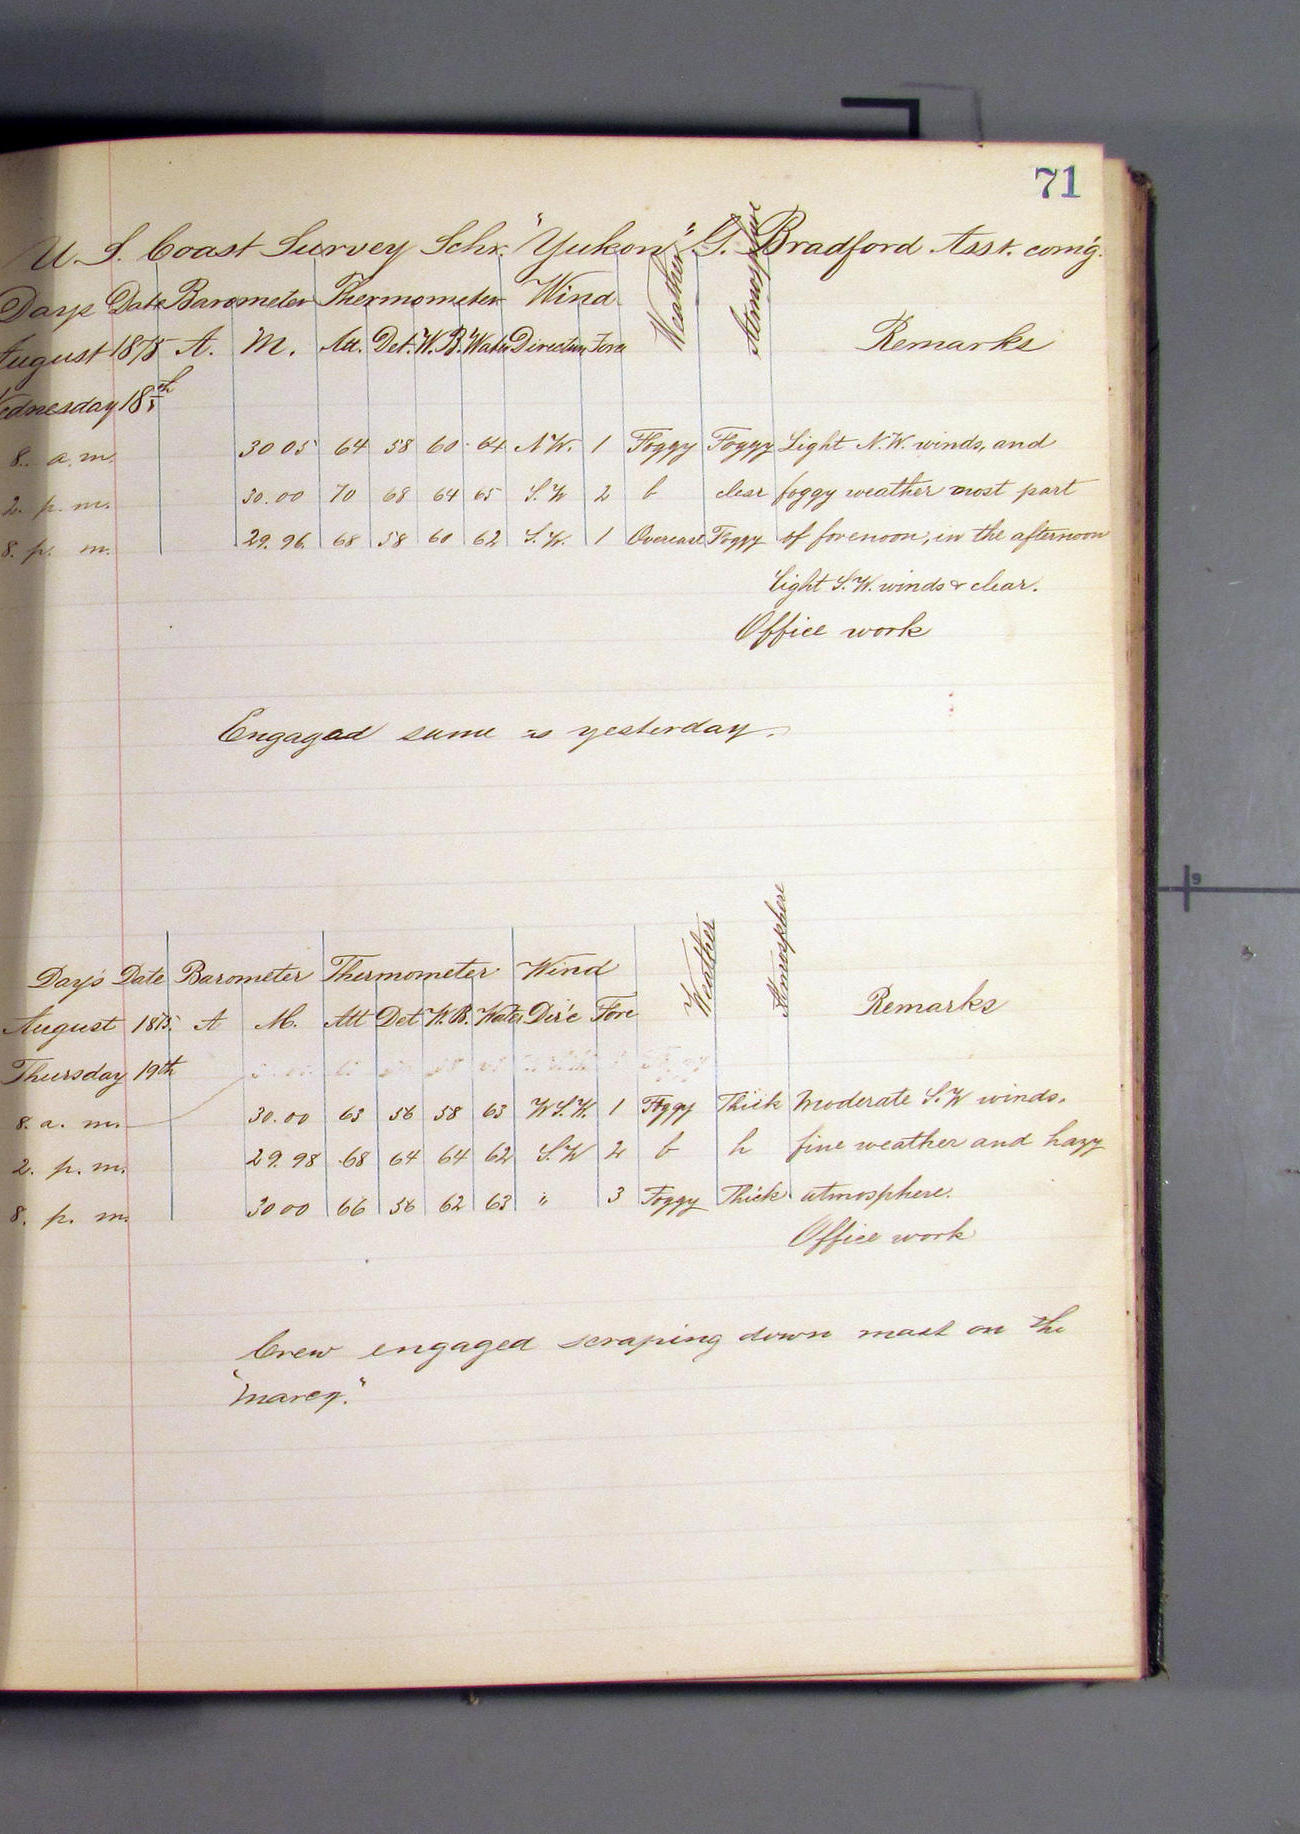 71
U. S. Coast Survey Schr. "Yukon" G. Bradford Asst. com'g.
Days Date Barometer Thermometer Wind Weather Atmosphere
August 1875 A. M. Att. Det. W.B. Water Direction Force Remarks
Wednesday 18th
8. a. m. 30 05 64 58 60 64 N.W. 1 Foggy Foggy Light N.W. winds, and
2. p. m. 30.00 70 68 64 65 S.W 2 b clear foggy weather most part
8. p. m. 29.96 68 58 60 62 S.W. 1 Overcast Foggy of forenoon; in the afternoon
light S.W. winds & clear.
Office work
Engaged same as yesterday.
Day's Date Barometer Thermometer Wind Weather Atmosphere
August 1875 A M. Att Det W.B. Water Dir'c Force Remarks
Thursday 19th
8. a. m. 30.00 63 56 58 63 W.S.W. 1 Foggy Thick Moderate S.W winds.
2. p. m. 29.98 68 64 64 62 S.W 2 b h fine weather and hazy
8. p. m. 30 00 66 56 62 63 " 3 Foggy Thick atmosphere.
Office work
Crew engaged scraping down mast on the
"Marcy."